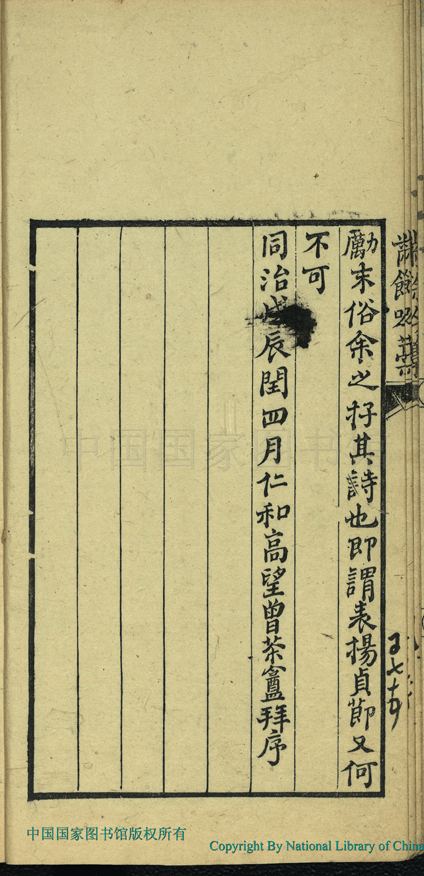 勵末俗余之籽其詩也即謂表揚貞節又何
不可
同治戊辰閏四月仁和高望曾茶盦拜序
中国国家图书馆
中国国家图书馆版权所有
Copyright By National Library of China